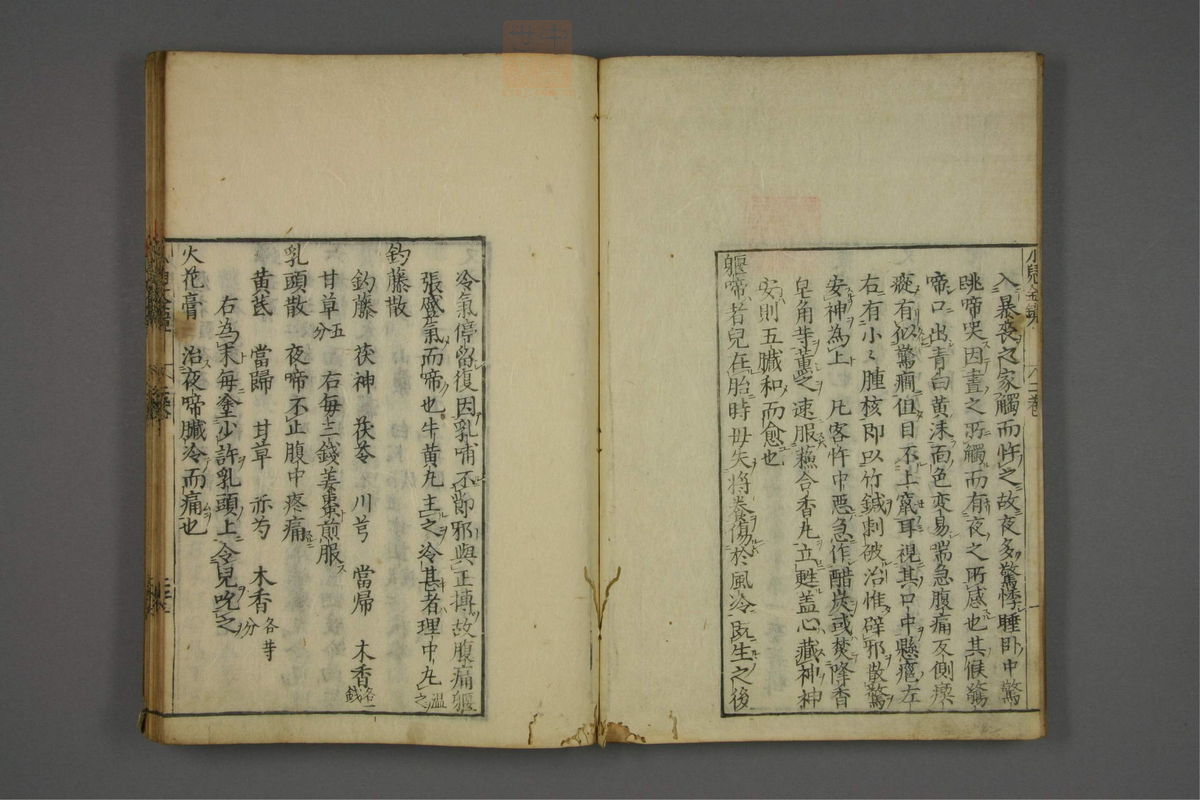 入暴喪之家觸而忤之故夜多驚悸睡卧中驚
跳啼哭因晝之所觸而有夜之所感也其候驚
啼口出青白黄沫面色変易喘急腹痛反側瘈
瘲有似驚癇但目不上竄耳視其口中懸癰左
右有小〻腫核即以竹鍼刺破治惟辟邪散驚
安神為上　凡客忤中悪急作醋炭或焚降香
皂角䓁薰之速服蘓合香丸立甦盖心藏神神
安則五臓和而愈也
軀啼者兒在胎時毋失將養傷於風冷既生之後
冷氣停留復因乳哺不節邪與正搏故腹痛軀
張蹙氣而啼也牛黄丸主之冷甚者理中丸温之
釣藤散
釣藤　茯神　茯苓　川芎　當帰　木香各一錢
甘草五分　右毎三錢姜棗煎服
乳頭散　夜啼不止腹中疼痛
黄芪　當歸　甘草　赤芍　木香各䓁分
右為末毎塗少許乳頭上令兒吮之
火花膏　治夜啼臓冷而痛也